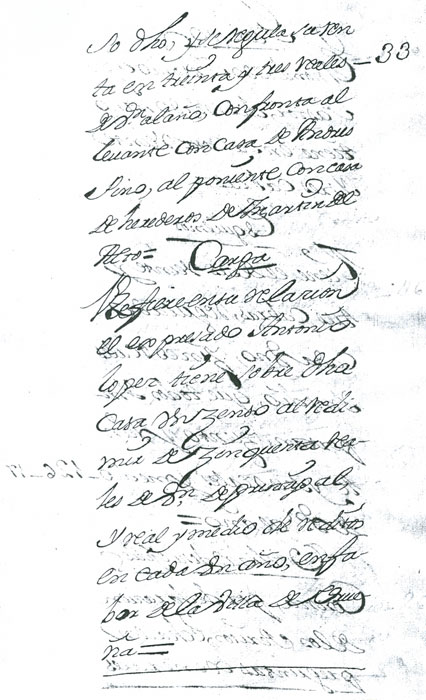 so dho, y se regula su ren
ta en treinta y tres reales — 33
de Vn al año, confronta al
levante con casa de Andres
Pino, al poniente con casa
de herederos de Martin del
Alto=
Carga
Refiere en su relacion
el expresado Antonio
lopez tiene sobre dha
Casa Un zenso al redi-
mir de zinquenta rea-
les de Vn de prinzipal
y real y medio de reditos
en cada un año, en fa-
bor de la
ña=